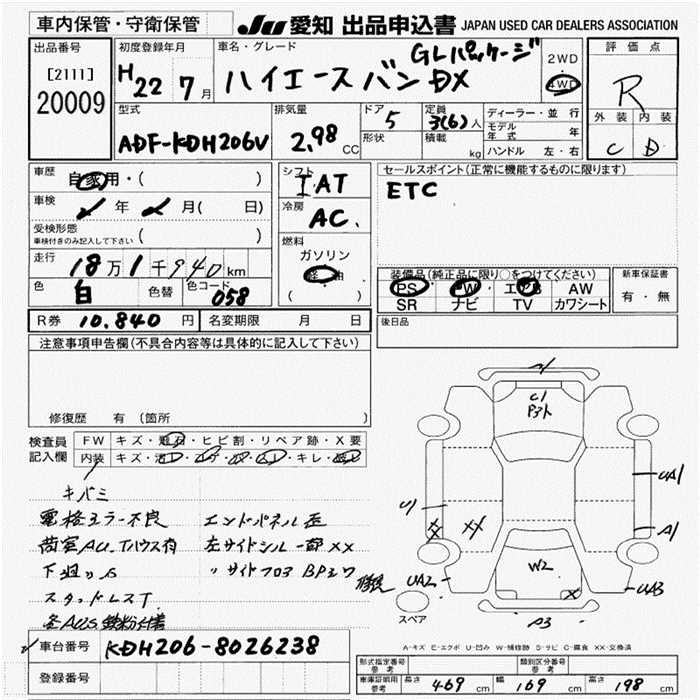 車内保管・守衛保管
JU 愛知 出品申込書 JAPAN USED CAR DEALERS ASSOCIATION
出品番号
[2111]
20009
初度登録年月
H22 7月
車名・グレード
GLパッケージ
ハイエースバン DX
2WD
4WD
評価点
R
外装 内装
C D
型式
ADF-KDH206V
排気量
2.98 CC
ドア 5
形状
定員 3(6)人
積載 kg
ディーラー・並行
モデル年式 年
ハンドル 左・右
車歴
自家用・( )
車検
年 月( 日)
受検形態
車検付きのみ記入して下さい ( )
走行
18万1千940km
色
白
色替
色コード 058
シフト
IAT
冷房
AC.
燃料
ガソリン
軽油
( )
セールスポイント(正常に機能するものに限ります)
ETC
装備品(純正品に限り○をつけてください)
PS PW エアB AW
SR ナビ TV カワシート
新車保証書
有・無
R券 10.840 円 名変期限 月 日
後日品
注意事項申告欄(不具合内容等は具体的に記入して下さい)
修復歴 有 (箇所 )
検査員
記入欄
FW キズ・飛石・ヒビ割・リペア跡・X要
内装
キバミ
電格ミラー不良 エンドパネル
左サイドシル一部XX
下廻りS
スタッドレスT
車台番号 KDH206-8026238
登録番号
C1
U1
XX
XX
UA1
A1
W2
X
UA2
UA3
A3
スペア
A-キズ E-エクボ U-凹み W-補修跡 S-サビ C-腐食 XX-交換済
形式指定番号 参考
類別区分番号 参考
車庫証明用 参考
長さ 469 cm 幅 169 cm 高さ 198 cm